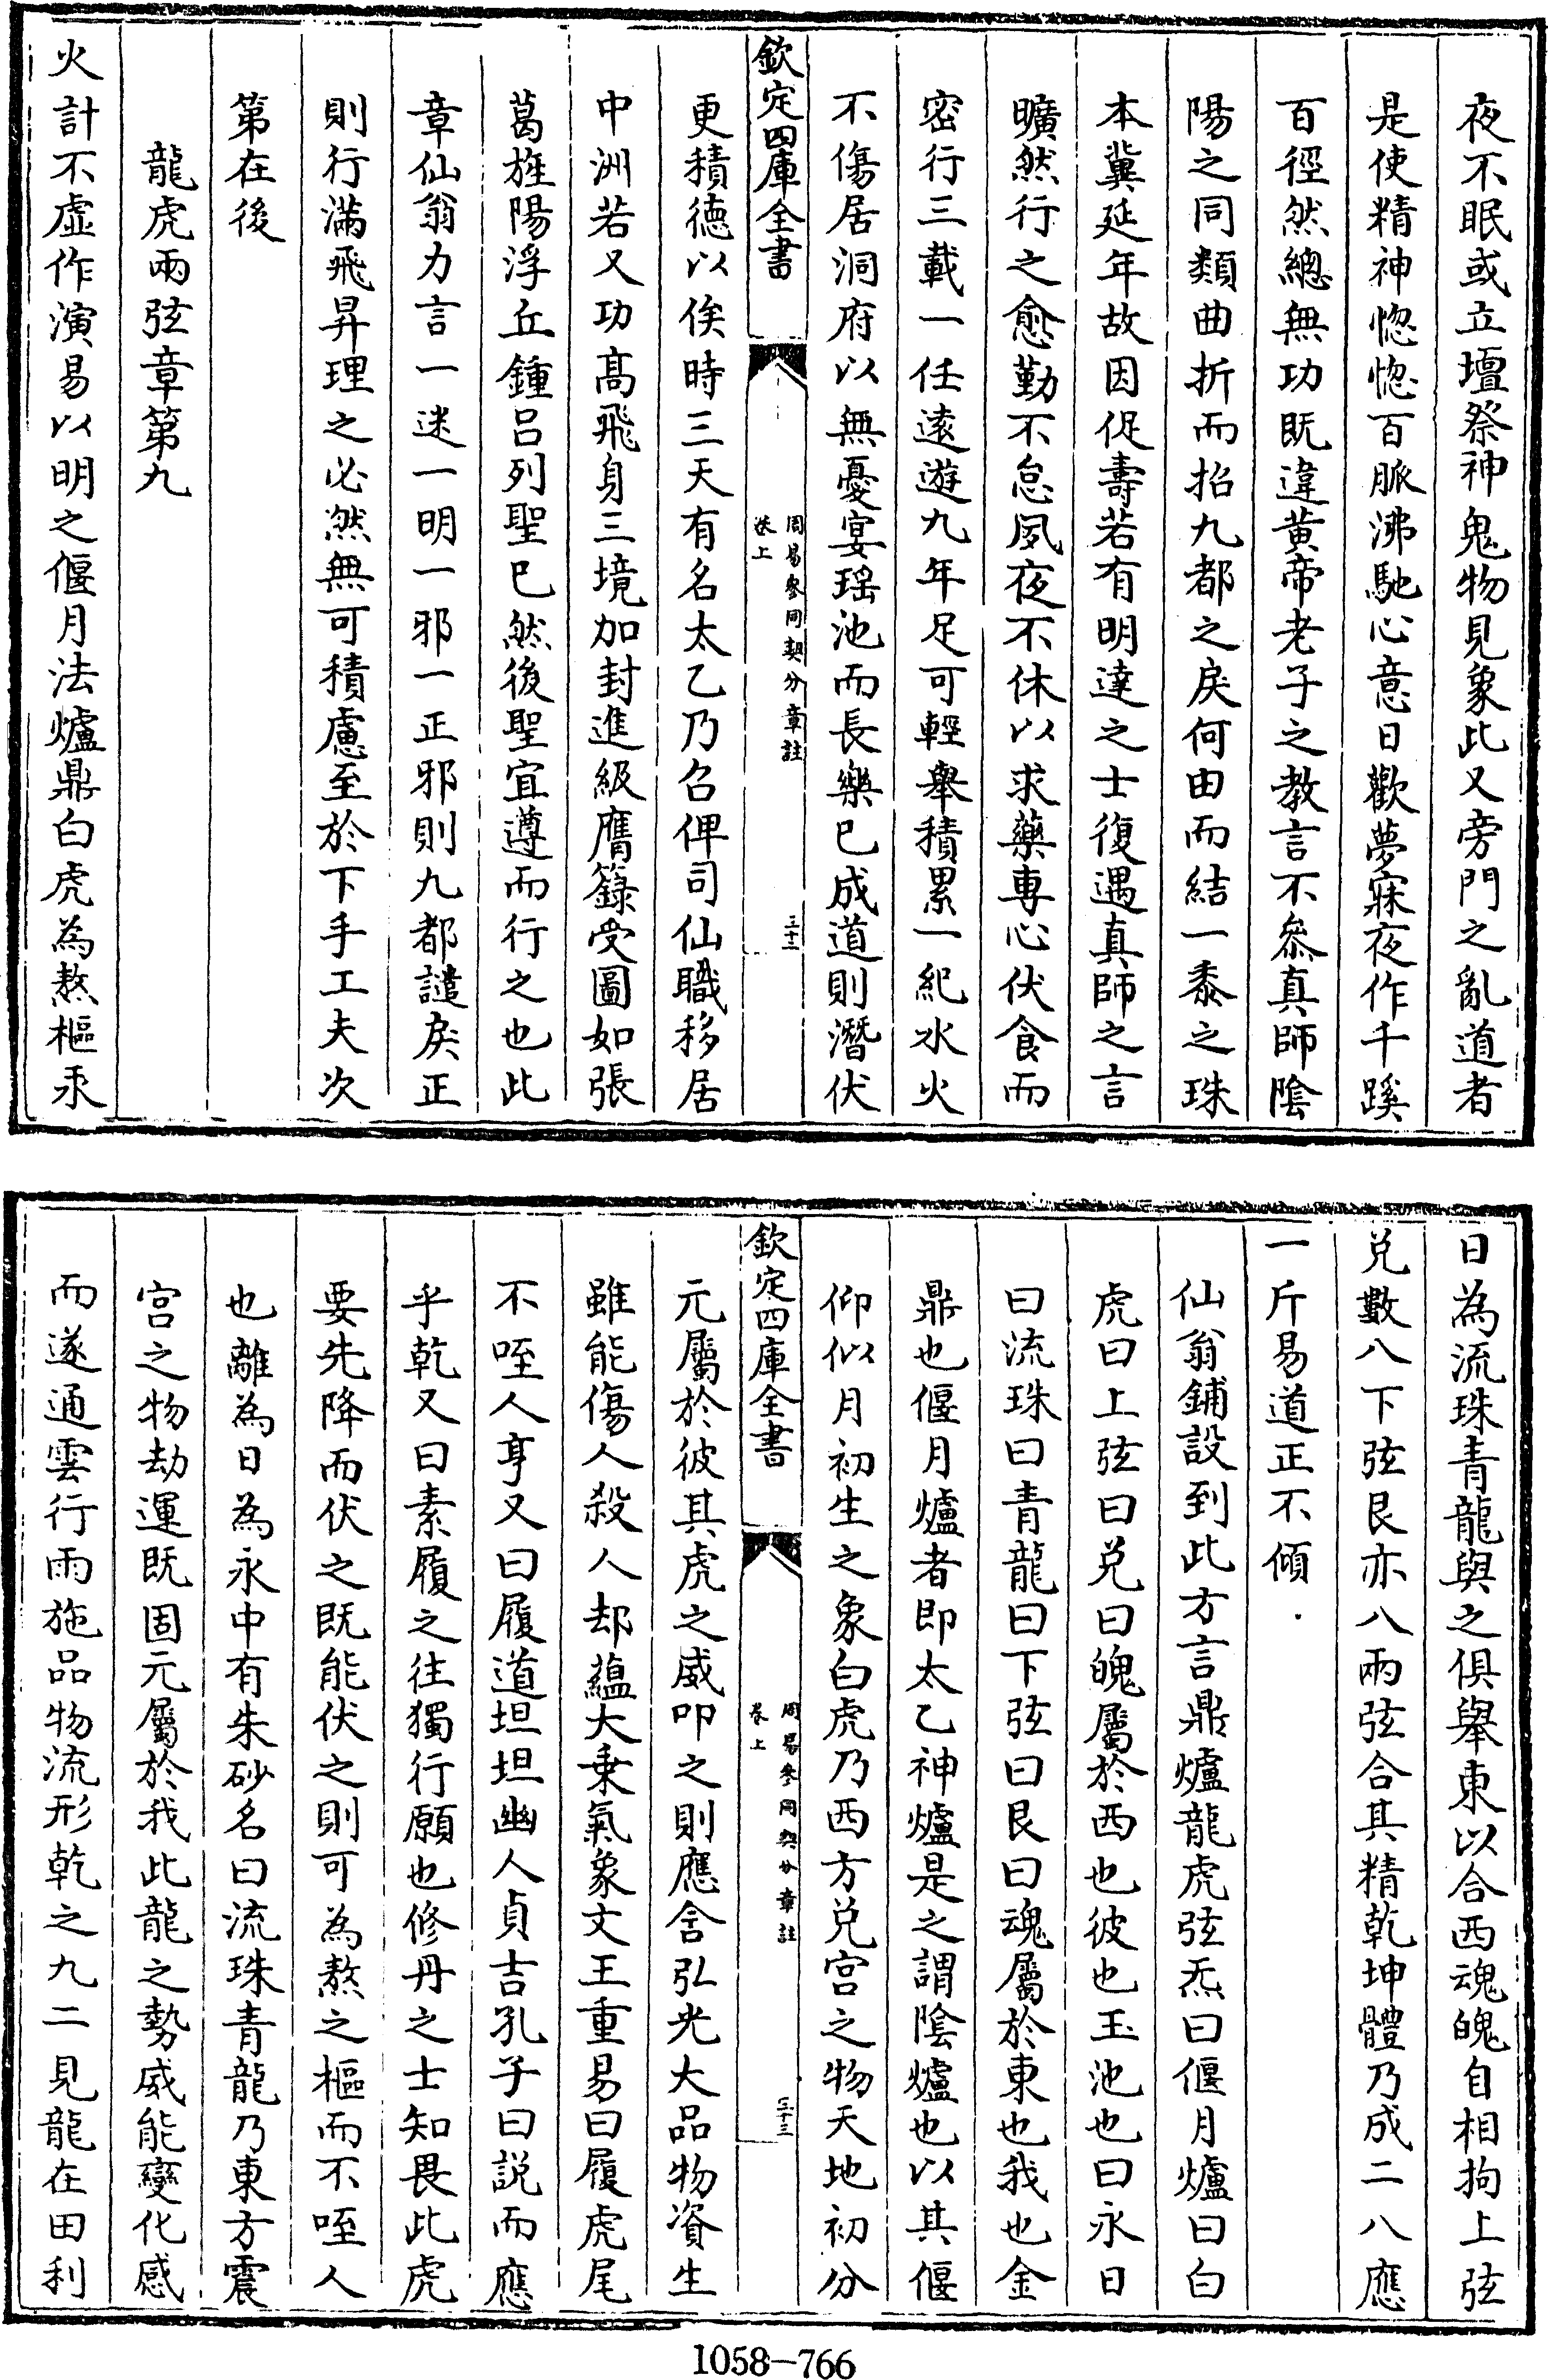 夜不眠或立壇祭神鬼物見象此又旁門之亂道者
是使精神惚惚百脈沸馳心意日歡夢寐夜作千蹊
百徑然總無功既違黃帝老子之教言不叅真師陰
陽之同類曲折而招九都之戾何由而結一黍之珠
本冀延年故因促壽若有明達之士復遇真師之言
曠然行之愈勤不怠夙夜不休以求藥専心伏食而
密行三載一任逺遊九年足可輕舉積累一紀水火
不傷居洞府以無憂宴瑶池而長樂已成道則潛伏
欽定四庫全書
周易參同契分章註
卷上
三十二
更積德以俟時三天有名太乙乃召俾司仙職移居
中洲若又功髙飛身三境加封進級膺籙受圖如張
葛旌陽浮丘鍾吕列聖已然後聖宜遵而行之也此
章仙翁力言一迷一明一邪一正邪則九都譴戾正
則行滿飛昇理之必然無可積慮至於下手工夫次
第在後
龍虎兩弦章第九
火計不虛作演易以明之偃月法爐鼎白虎為熬樞汞
日為流珠青龍與之俱舉東以合西魂魄自相拘上弦
兌數八下弦艮亦八兩弦合其精乾坤體乃成二八應
一斤易道正不傾
仙翁鋪設到此方言鼎爐龍虎弦炁曰偃月爐曰白
虎曰上弦曰兌曰魄屬於西也彼也玉池也曰永日
曰流珠曰青龍曰下弦曰艮曰魂屬於東也我也金
鼎也偃月爐者即太乙神爐是之謂陰爐也以其偃
仰似月初生之象白虎乃西方兌宫之物天地初分
欽定四庫全書
周易參同契分章註
卷上
三十三
元屬於彼其虎之威叩之則應含弘光大品物資生
雖能傷人殺人却蘊大乗氣象文王重易曰履虎尾
不咥人亨又曰履道坦坦幽人貞吉孔子曰説而應
乎乾又曰素履之往獨行願也修丹之士知畏此虎
要先降而伏之既能伏之則可為熬之樞而不咥人
也離為日為永中有朱砂名曰流珠青龍乃東方震
宫之物劫運既固元屬於我此龍之勢威能變化感
而遂通雲行雨施品物流形乾之九二見龍在田利
1058-766